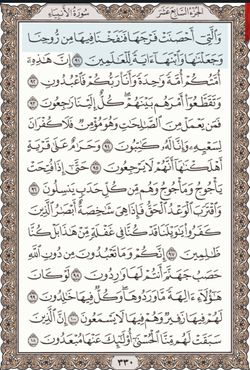 الجزء السابع عشر
سورة الأنبياء
وَالَّتِي أَحْصَنَتْ فَرْجَهَا فَنَفَخْنَا فِيهَا مِن رُّوحِنَا
وَجَعَلْنَاهَا وَابْنَهَا آيَةً لِّلْعَالَمِينَ ٩١ إِنَّ هَٰذِهِ
أُمَّتُكُمْ أُمَّةً وَاحِدَةً وَأَنَا رَبُّكُمْ فَاعْبُدُونِ ٩٢
وَتَقَطَّعُوا أَمْرَهُم بَيْنَهُمْ كُلٌّ إِلَيْنَا رَاجِعُونَ ٩٣
فَمَن يَعْمَلْ مِنَ الصَّالِحَاتِ وَهُوَ مُؤْمِنٌ فَلَا كُفْرَانَ
لِسَعْيِهِ وَإِنَّا لَهُ كَاتِبُونَ ٩٤ وَحَرَامٌ عَلَىٰ قَرْيَةٍ
أَهْلَكْنَاهَا أَنَّهُمْ لَا يَرْجِعُونَ ٩٥ حَتَّىٰ إِذَا فُتِحَتْ
يَأْجُوجُ وَمَأْجُوجُ وَهُم مِّن كُلِّ حَدَبٍ يَنسِلُونَ ٩٦
وَاقْتَرَبَ الْوَعْدُ الْحَقُّ فَإِذَا هِيَ شَاخِصَةٌ أَبْصَارُ الَّذِينَ
كَفَرُوا يَا وَيْلَنَا قَدْ كُنَّا فِي غَفْلَةٍ مِّنْ هَٰذَا بَلْ كُنَّا
ظَالِمِينَ ٩٧ إِنَّكُمْ وَمَا تَعْبُدُونَ مِن دُونِ اللَّهِ
حَصَبُ جَهَنَّمَ أَنتُمْ لَهَا وَارِدُونَ ٩٨ لَوْ كَانَ
هَٰؤُلَاءِ آلِهَةً مَّا وَرَدُوهَا وَكُلٌّ فِيهَا خَالِدُونَ ٩٩
لَهُمْ فِيهَا زَفِيرٌ وَهُمْ فِيهَا لَا يَسْمَعُونَ ١٠٠ إِنَّ الَّذِينَ
سَبَقَتْ لَهُم مِّنَّا الْحُسْنَىٰ أُولَٰئِكَ عَنْهَا مُبْعَدُونَ ١٠١
٣٣٠